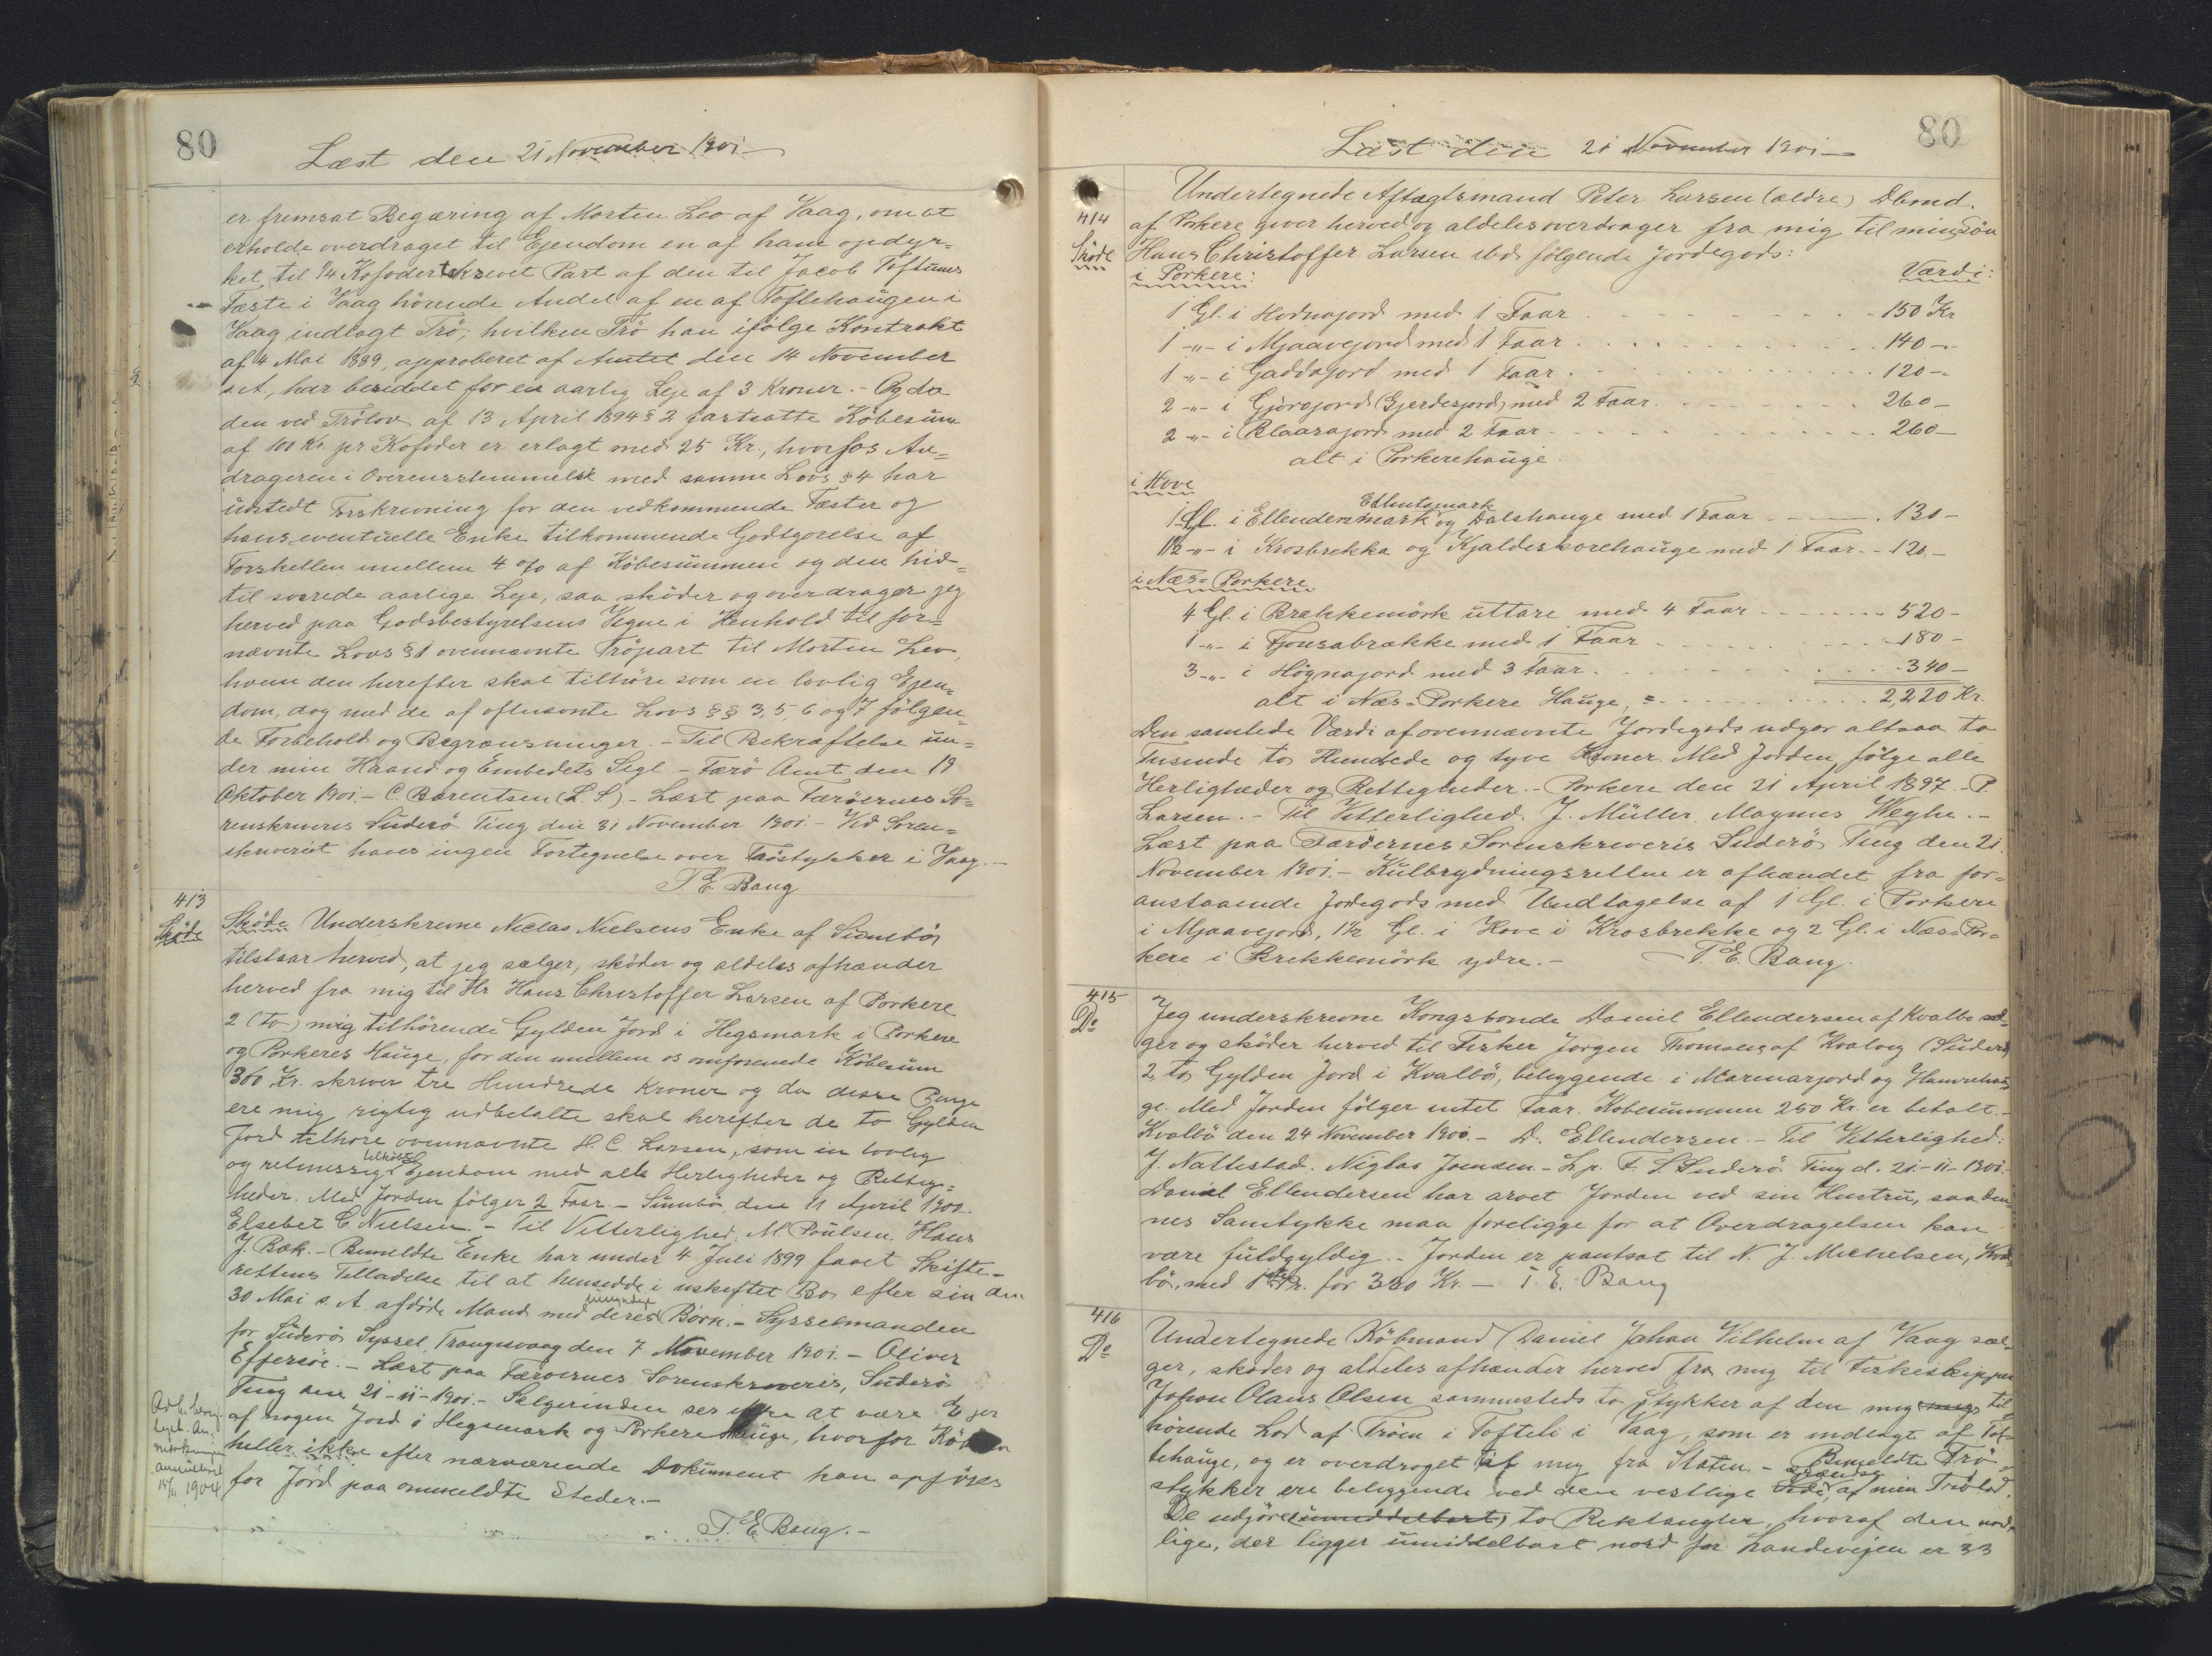 80
Læst den 21 November 1901 —
er fremsat Begæring af Morten Leo af Vaag, om at
erholde overdraget til Ejendom en af ham opdyr=
ket, til 1/4 Kofoder takseret Part af den til Jacob Toftums
Fæste i Vaag hörende Andel af en af Toftehaugen i
Vaag indlagt Trö, hvilken Trö han ifölge Kontrakt
af 4 Mai 1889, approberet af Amtet den 14 November
s. A., har besiddet for en aarlig Leje af 3 Kroner. - Og da
den ved Trölov af 13 April 1894 § 2 fastsatte Köbesum
af 100 Kr. pr. Kofoder er erlagt med 25 Kr., hvorfos An=
drageren i Overensstemmelse med samme Lovs § 4 har
udstedt Forskrivning for den vedkommende Fæster og
hans eventuelle Enke tilkommende Godtgörelse af
Forskellen mellem 4 % af Köbesummen og den hid=
til svarede aarlige Leje, saa sköder og overdrager jeg
herved paa Godsbestyrelsens Vegne i Henhold til for=
nævnte Lovs § 1 ovennævnte Tröpart til Morten Leo,
hvem den herefter skal tilhöre som en lovlig Ejen=
dom, dog med de af oftnævnte Lovs §§ 3, 5, 6 og 7 fölgen=
de Forbehold og Begrænsninger. - Til Bekræftelse un=
der min Haand og Embedets Segl - Færö Amt, den 19
Oktober 1901. - C. Bærentsen (L. S.) - Læst paa Færöernes So=
renskriveris Suderö Ting den 21 November 1901. - Ved Soren=
skriveriet haves ingen Fortegnelse over Tröstykker i Vaag. -
T. E. Bang
413
Sköde
Sköde Underskrevne Niclas Nielsens Enke af Sumbö
tilstaar herved, at jeg sælger, sköder og aldeles afhænder
herved fra mig til Hr Hans Christoffer Larsen af Porkere
2 (to) mig tilhörende Gylden Jord i Hegsmark i Porkere
og Porkeres Hauge, for den mellem os omforenede Köbesum
300 Kr. skriver tre Hundrede Kroner og da disse Penge
ere mig rigtig udbetalte skal herefter de to Gylden
Jord tilhöre ovennævnte H. C. Larsen, som en lovlig
og retmæssig tilköbt Ejendom med alle Herligheder og Rettig=
heder. Med Jorden fölger 2 Faar. - Sumbö, den 11 April 1900.
Elsebet C Nielsen. - Til Vitterlighed. M Poulsen. Hans
J. Bak. - Bemeldte Enke har under 4 Juli 1899 faaet Skifte-
rettens Tilladelse til at hensidde i uskiftet Bo efter sin den
30 Mai s. A. afdöde Mand med deres umyndige Börn. - Sysselmanden
for Suderö Syssel, Trangisvaag den 7 November 1901. - Oliver
Effersöe. - Læst paa Færöernes Sorenskriveris, Suderö
Ting den 21-11-1901. - Sælgerinden ses ikke at være Ejer
af nogen Jord i Hegsmark og Porkere Hauge, hvorfor Köberen
heller ikke efter nærværende Dokument kan opföres
for Jord paa ommeldte Steder. -
T. E. Bang. -
mærkningen
annulleret
15/11 1904
80
Læst den 21 November 1901 —
414
Sköde
Undertegnede Aftægtsmand Peter Larsen (ældre) Dbmd.
af Porkere giver herved og aldeles overdrager fra mig til min Sön
Hans Christoffer Larsen ibd. fölgende Jordegods:
i Porkere: Værdi:
1 Gl. i Hodnajord med 1 Faar - 150 Kr
1 -"- i Mjaavejord med 1 Faar - 140 -
1 -"- i Gaddajord med 1 Faar - 120 -
2 -"- i Gjörajord (Gjerdesjord) med 2 Faar - 260 -
2 -"- i Blaarajord med 2 Faar - 260 -
alt i Porkerehauge.
i Hove
Edmitsmark
1 Gl. i Ellendemark og Dalshauge med 1 Faar - 130 -
1 1/2 -"- i Krosbrekka og Kjaldeskorehauge med 1 Faar - 120 -
i Næs=Porkere
4 Gl. i Brekkemörk uttare med 4 Faar - 520 -
1 -"- i Fjonsabrække med 1 Faar - 180 -
3 -"- i Högnajord med 3 Faar - 340 -
alt i Næs=Porkere Hauge, = 2,220 Kr.
Den samlede Værdi af ovennævnte Jordegods udgör altsaa to
Tusende to Hundrede og tyve Kroner. Med Jorden fölge alle
Herligheder og Rettigheder. - Porkere den 21 April 1897. - P.
Larsen. - Til Vitterlighed. J. Müller. Magnus Weyhe. -
Læst paa Færöernes Sorenskriveris Suderö Ting den 21
November 1901. - Kulbrydningsretten er afhændet fra for=
anstaaende Jordegods med Undtagelse af 1 Gl. i Porkere
i Mjaavejord, 1 1/2 Gl. i Hove i Krosbrekke og 2 Gl. i Næs=Por=
kere i Brekkemörk ydre. - T. E. Bang.
415
Do
Jeg underskrevne Kongsbonde Daniel Ellendersen af Kvalbö sæl=
ger og sköder herved til Fisker Jorgen Thomsen af Kvalvig (Suderö)
2, to Gylden Jord i Kvalbö, beliggende i Marenarjord og Hamrehau=
ge. Med Jorden fölger intet Faar. Köbesummen 250 Kr. er betalt. -
Kvalbö den 24 November 1900. - D. Ellendersen. - Til Vitterlighed:
J. Nattestad. Niglas Joensen. - L. p. F. S. Suderö Ting d. 21-11-1901. -
Daniel Ellendersen har arvet Jorden ved sin Hustru, saa den=
nes Samtykke maa foreligge for at Overdragelsen kan
være fuldgyldig. - Jorden er pantsat til N. J. Michelsen, Kval=
bö, med 1ste Pr. for 300 Kr. - T. E. Bang
416
Do
Undertegnede Köbmand Daniel Johan Vilhelm af Vaag sæl=
ger, sköder og aldeles afhænder herved fra mig til Fiskeskipper
Johan Olaus Olsen sammesteds to Stykker af den mig mig til=
hörende Lod af Tröen i Tofteli i Vaag, som er indlagt af Tof=
tehauge, og er overdraget af mig fra Staten. - Bemeldte Trö=
stykker ere beliggende ved den vestlige Side Grænse af min Trölod.
De udgöre (umiddelbart) to Rektangler, hvoraf den nord=
lige, der ligger umiddelbart nord for Landevejen er 33